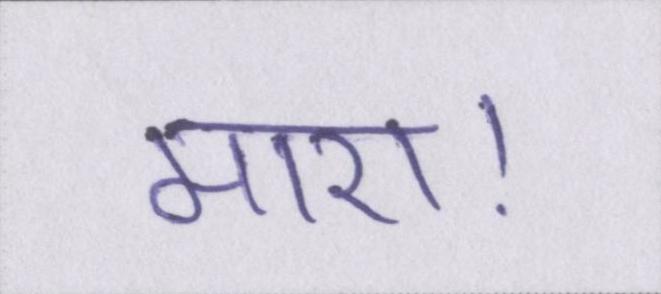 मारा!